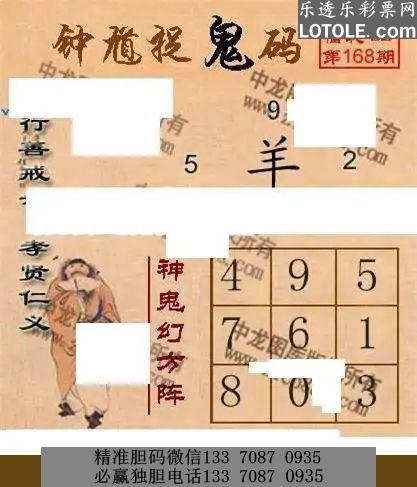 乐透乐彩票网
LOTOLE.COM
钟馗捉鬼码
第168期
行善戒
孝贤仁义
9
5 羊 2
神鬼幻方阵
4 9 5
7 6 1
8 0 3
精准胆码微信133 7087 0935
必赢独胆电话133 7087 0935